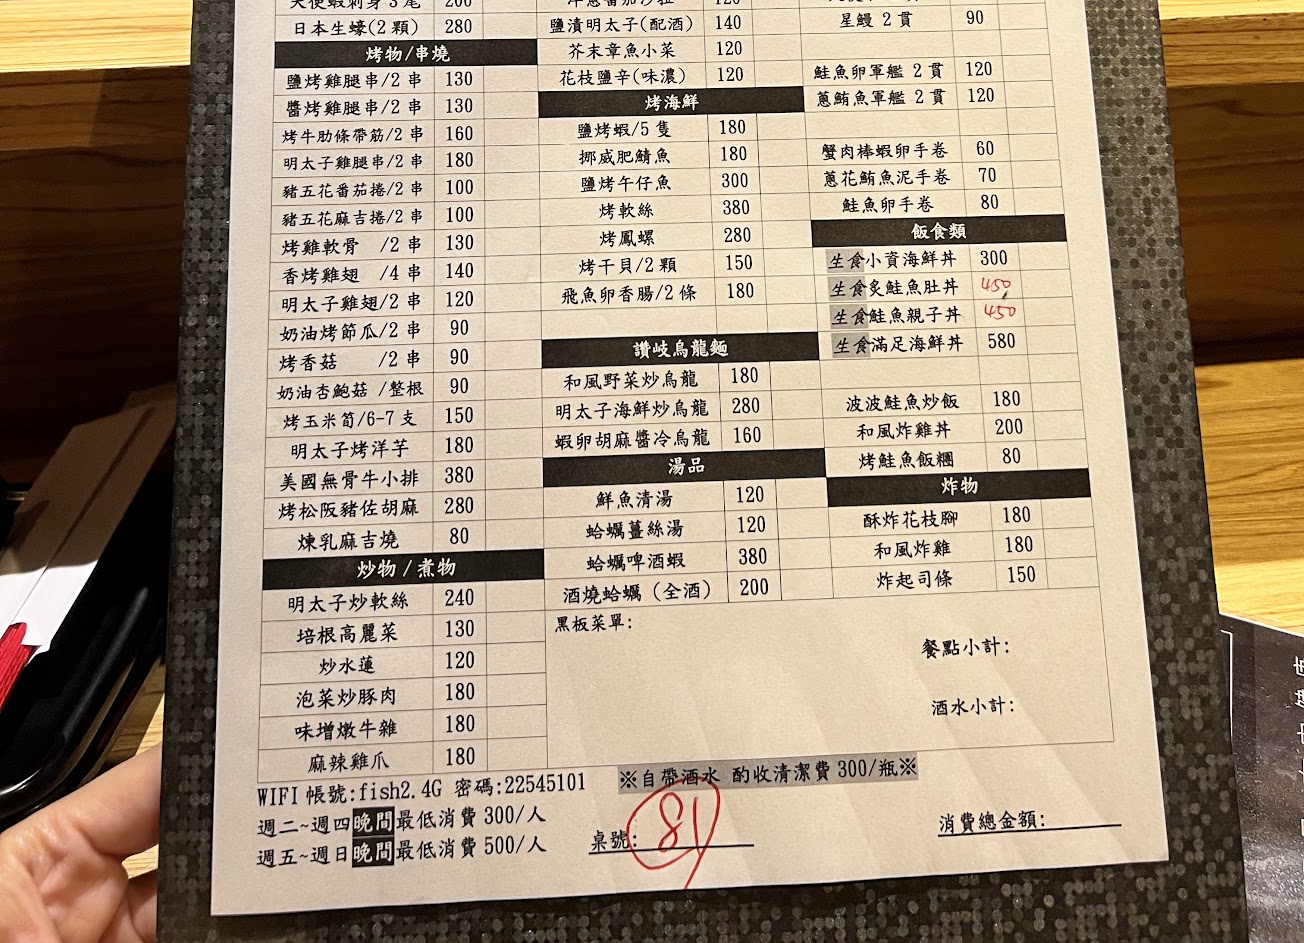 天使蝦刺身3尾 200
日本生蠔(2顆) 280
烤物/串燒
鹽烤雞腿串/2串 130
醬烤雞腿串/2串 130
烤牛肋條帶筋/2串 160
明太子雞腿串/2串 180
豬五花番茄捲/2串 100
豬五花麻吉捲/2串 100
烤雞軟骨 /2串 130
香烤雞翅 /4串 140
明太子雞翅/2串 120
奶油烤節瓜/2串 90
烤香菇 /2串 90
奶油杏鮑菇 /整根 90
烤玉米筍/6-7支 150
明太子烤洋芋 180
美國無骨牛小排 380
烤松阪豬佐胡麻 280
煉乳麻吉燒 80
炒物/煮物
明太子炒軟絲 240
培根高麗菜 130
炒水蓮 120
泡菜炒豚肉 180
味增燉牛雜 180
麻辣雞爪 180
120
鹽漬明太子(配酒) 140
芥末章魚小菜 120
花枝鹽辛(味濃) 120
烤海鮮
鹽烤蝦/5隻 180
挪威肥鯖魚 180
鹽烤午仔魚 300
烤軟絲 380
烤鳳螺 280
烤干貝/2顆 150
飛魚卵香腸/2條 180
讚岐烏龍麵
和風野菜炒烏龍 180
明太子海鮮炒烏龍 280
蝦卵胡麻醬冷烏龍 160
湯品
鮮魚清湯 120
蛤蠣薑絲湯 120
蛤蠣啤酒蝦 380
酒燒蛤蠣(全酒) 200
星鰻2貫 90
鮭魚卵軍艦2貫 120
蔥鮪魚軍艦2貫 120
蟹肉棒蝦卵手卷 60
蔥花鮪魚泥手卷 70
鮭魚卵手卷 80
飯食類
生食小資海鮮丼 300
生食炙鮭魚肚丼 450
生食鮭魚親子丼 450
生食滿足海鮮丼 580
波波鮭魚炒飯 180
和風炸雞丼 200
烤鮭魚飯糰 80
炸物
酥炸花枝腳 180
和風炸雞 180
炸起司條 150
黑板菜單:
餐點小計:
酒水小計:
WIFI 帳號:fish2.4G 密碼:22545101
※自帶酒水 酌收清潔費300/瓶※
週二~週四晚間最低消費300/人
週五~週日晚間最低消費500/人
桌號: 81
消費總金額: